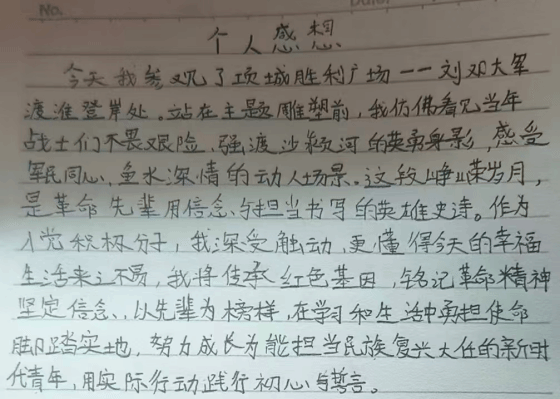 No.
个人感想
今天我参观了项城胜利广场一一刘邓大军
渡淮登岸处。站在主题雕塑前,我仿佛看见当年
战士们不畏艰险、强渡沙颍河的英勇身影,感受
军民同心、鱼水深情的动人场景。这段峥嵘岁月,
是革命先辈用信念、与担当书写的英雄史诗。作为
入党积极分子,我深受触动,更懂得今天的幸福
生活来之不易,我将传承红色基因,铭记革命精神
坚定信念、以先辈为榜样,在学习和生活中勇担使命
脚踏实地,努力成长为能担当民族复兴大任的新时
代青年,用实际行动践行初心与誓言。